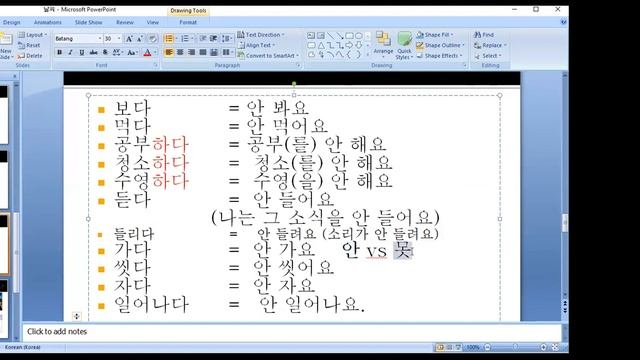 날짜 - Microsoft PowerPoint
Drawing Tools
Design Animations Slide Show Review View Format
Batang 30
Font Paragraph Drawing Editing
Text Direction
Align Text
Convert to SmartArt
Shapes Arrange Quick Styles
Shape Fill
Shape Outline
Shape Effects
Find
Replace
Select
보다 = 안 봐요
먹다 = 안 먹어요
공부하다 = 공부(를) 안 해요
청소하다 = 청소(를) 안 해요
수영하다 = 수영(을) 안 해요
듣다 = 안 들어요
(나는 그 소식을 안 들어요)
들리다 = 안 들려요 (소리가 안 들려요)
가다 = 안 가요 안 vs 못
씻다 = 안 씻어요
자다 = 안 자요
일어나다 = 안 일어나요.
Click to add notes
Korean (Korea)
100%